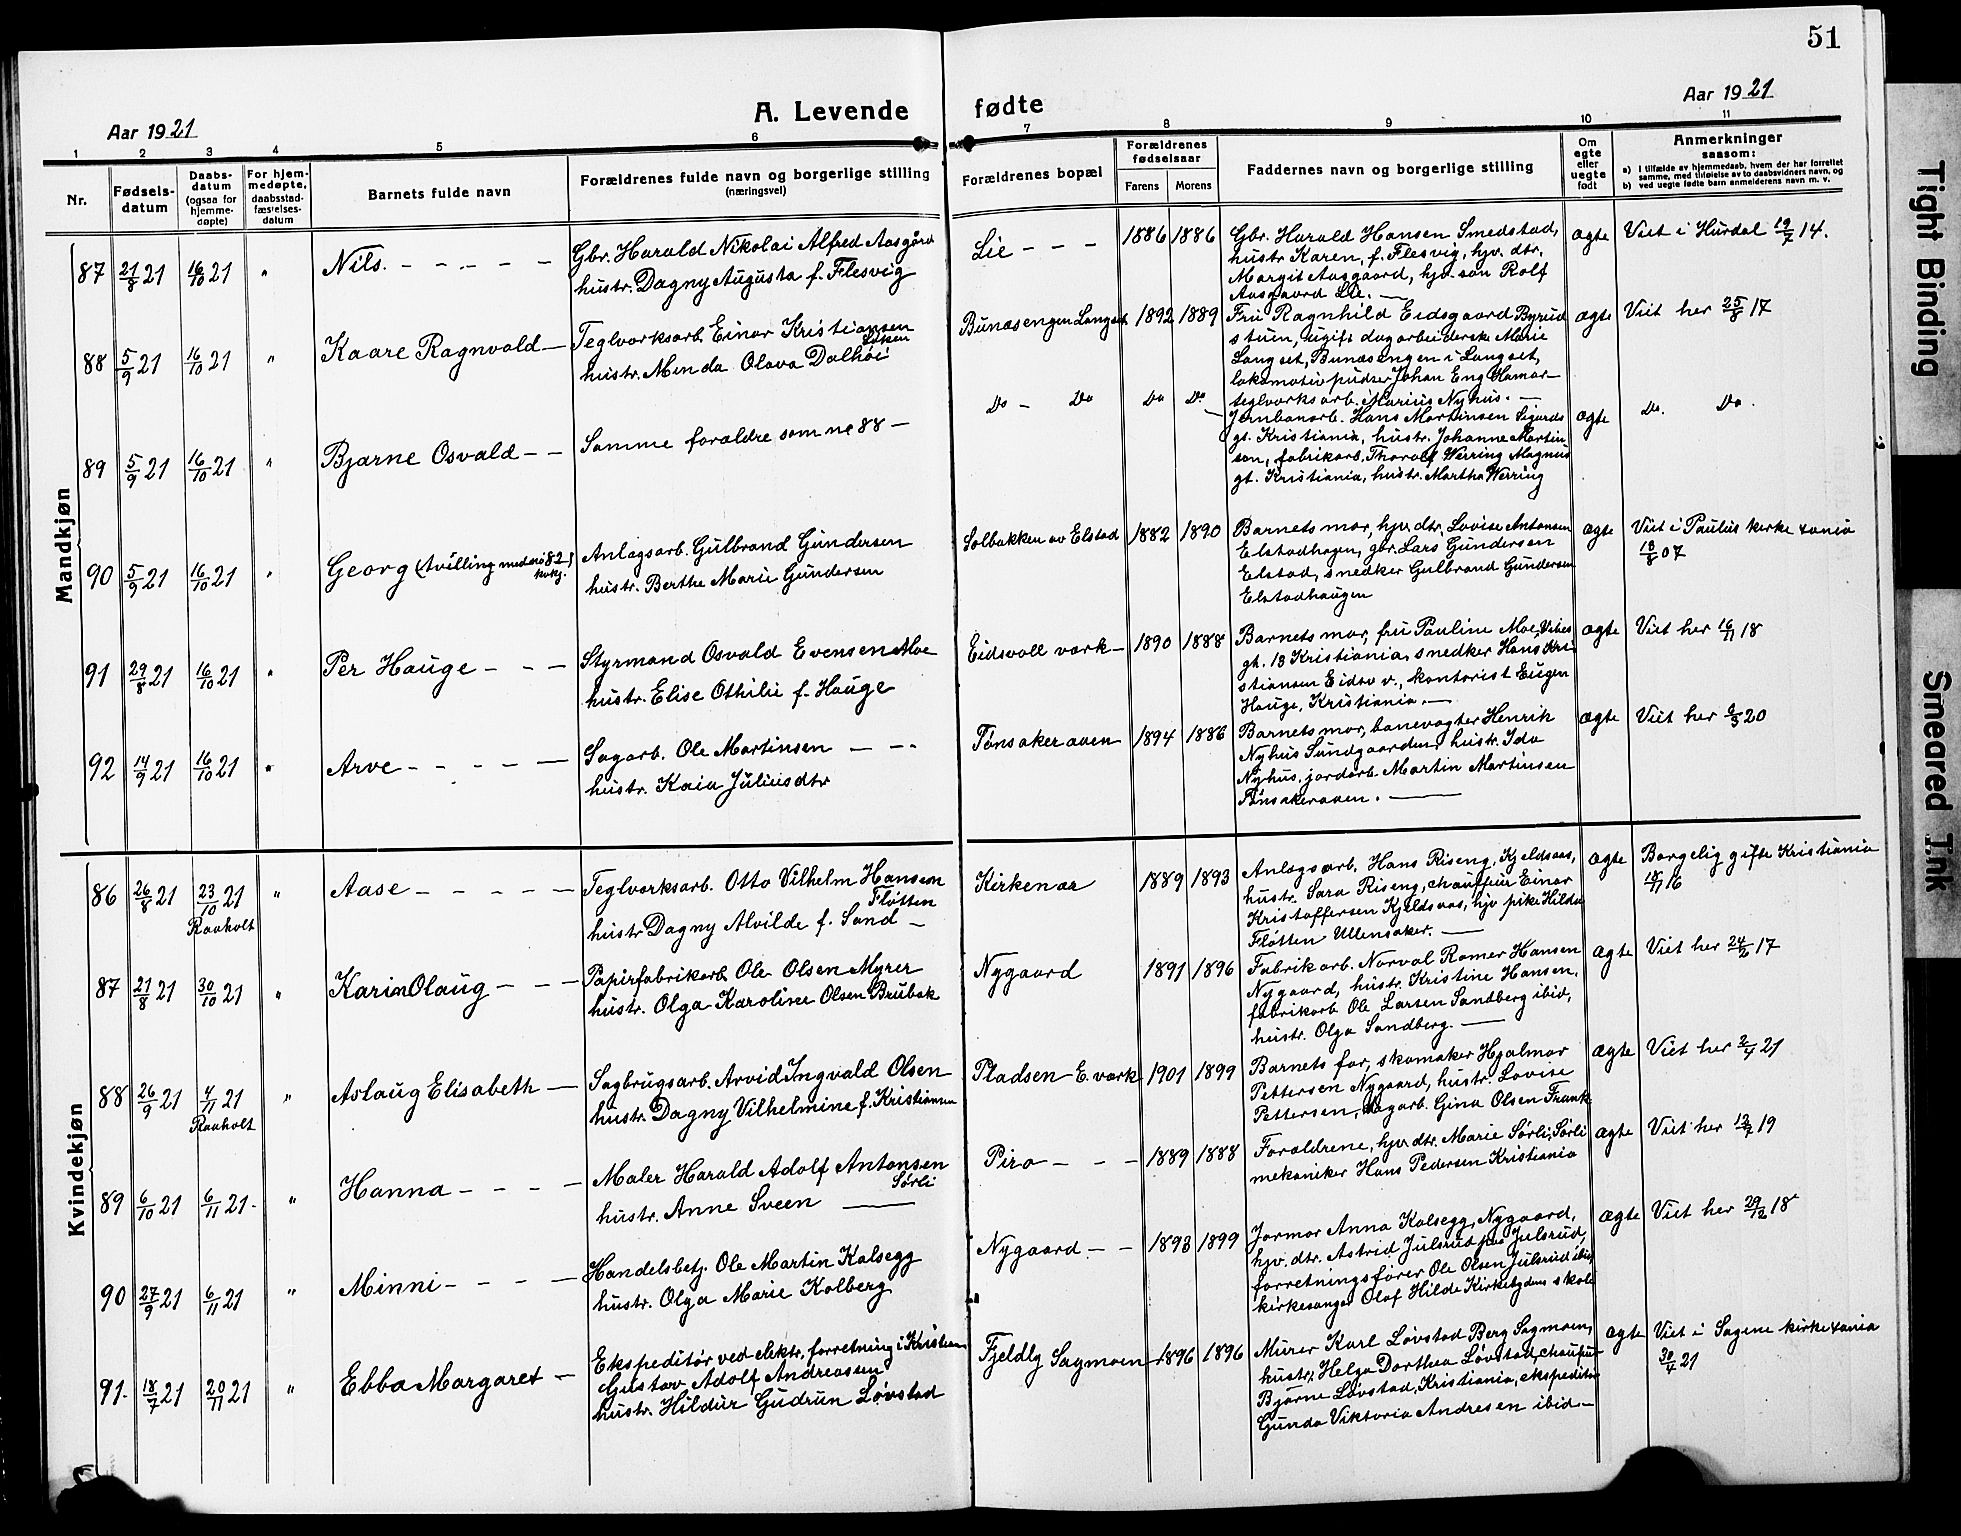 51
A. Levende fødte
Aar 1921
Aar 1921
1 2 3 4 5 6 7 8 9 10 11
Nr.
Fødsels-
datum
Daabs-
datum
(ogsaa for
hjemme-
døpte)
For hjem-
medøpte,
daabsstad-
fæstelses-
datum
Barnets fulde navn
Forældrenes fulde navn og borgerlige stilling
(næringsvei)
Forældrenes bopæl
Forældrenes
fødselsaar
Farens Morens
Faddernes navn og borgerlige stilling
Om
egte
eller
uegte
født
Anmerkninger
saasom:
a) I tilfælde av hjemmedaab, hvem der har forrettet
samme, med tilføielse av to daabsvidners navn, og
b) ved uegte fødte barn anmelderens navn m. v.
Mandkjøn
87 21/8 21 16/10 21 " Nils. - - - - -
Gbr. Harald Nikolai Alfred Aasgård
hustr. Dagny Augusta f. Flesvig
Lie - - - 1886 1886
Gbr. Harald Hansen Smedstad,
hustr Karen, f. Flesvig, hjv. dtr.
Margit Aasgaard, hjv. søn Rolf
Aasgaard Lie. —
ægte Viet i Hurdal 19/7 14.
88 5/9 21 16/10 21 " Kaare Ragnvald —
Teglverksarb. Einar Kristiansen
Løken
hustr. Menda Olava Dalhøi
Bunæsengen Langset 1892 1889
Fru Ragnhild Eidsgaard Byrud
stuen, ugift dagarbeiderske Marie
Langset, Bunæsengen i Langset,
lokomotivpudser Johan Eng Hamar —
teglverksarb. Marius Nyhus. —
ægte Viet her 25/8 17
89 5/9 21 16/10 21 " Bjarne Osvald - -
Samme forældre som nr 88 —
Do - Do Do Do
Jernbanarb. Hans Martinsen Sigurds
gt. Kristiania, hustr. Johanne Martin
sen, fabrikarb. Thoralf Werring Magnus
gt. Kristiania, hustr. Martha Werring
ægte Do. Do.
90 5/9 21 16/10 21 " Georg (tvilling med nr 82
kvkj.)
Anlægsarb. Gulbrand Gundersen
hustr. Berthe Marie Gundersen
Solbakken av Elstad 1882 1890
Barnets mor, hjv. dtr. Lovise Antonsen
Elstadhagen, gbr. Lars Gundersen
Elstad, snedker Gulbrand Gundersen
Elstadhaugen
ægte Viet i Paulus kirke xania
18/8 07
91 29/8 21 16/10 21 " Per Hauge - - -
Styrmand Osvald Evensen Moe
hustr. Elise Othilie f. Hauge
Eidsvoll verk — 1890 1888
Barnets mor, fru Pauline Moe, Vibes
gt. 18 Kristiania, snedker Hans Kri-
stiansen Eidsv v., kontorist Eugen
Hauge, Kristiania. —
ægte Viet her 16/11 18
92 14/9 21 16/10 21 " Arve - - - - -
Sagarb. Ole Martinsen - -
hustr. Kaia Juliusdtr
Tønsakeraaen 1894 1886
Barnets mor, banevogter Henrik
Nyhus Sundgaarden, hustr. Ida
Nyhus, jordarb. Martin Martinsen
Tønsakeraaen. —
ægte Viet her 6/3 20
Kvindekjøn
86 26/8 21 23/10 21 " Aase - - - - -
Raaholt
Teglverksarb. Otto Vilhelm Hansen
Fløtten
hustr Dagny Alvilde f. Sand —
Kirkenær 1889 1893
Anlægsarb. Hans Riseng, Kjeldsaas,
hustr. Sara Riseng, chauffeur Einar
Kristoffersen Kjeldsaas, hjv pike Hilda
Fløtten Ullensaker. —
ægte Borgelig gifte Kristiania
18/11 16
87 21/8 21 30/10 21 " Karin Olaug - - -
Papirfabrikarb. Ole Olsen Myrer
hustr. Olga Karoline Olsen Brubak
Nygaard 1891 1896
Fabrikarb. Norval Romer Hansen
Nygaard, hustr. Kristine Hansen,
fabrikarb Ole Larsen Sandberg ibid,
hustr. Olga Sandberg. —
ægte Viet her 24/2 17
88 26/9 21 4/11 21 " Aslaug Elisabeth —
Raaholt
Sagbrugsarb. Arvid Ingvald Olsen
hustr. Dagny Vilhelmine f. Kristiansen
Pladsen E. verk 1901 1899
Barnets far, skomaker Hjalmar
Pettersen Nygaard, hustr. Lovise
Pettersen, dagarb. Gina Olsen Frank
ægte Viet her 2/4 21
89 6/10 21 6/11 21 - " Hanna - - - -
Maler Harald Adolf Antonsen
Sørli
hustr. Anne Sveen —
Piro - - - 1889 1888
Forældrene, hjv. dtr. Marie Sørli, Sørli
mekaniker Hans Pedersen Kristiania
ægte Viet her 19
90 27/9 21 6/11 21 " Minni - - - -
Handelsbetj. Ole Martin Kalsegg
hustr. Olga Marie Kolberg
Nygaard - - 1893 1899
Jormor Anna Kalsegg, Nygaard,
hjv. dtr. Astrid Julsrud paa Julsrud,
forretningsfører Ole Olsen Julsrud ibid,
kirkesanger Olaf Hilde Kirkebygdens skole
ægte Viet her 29/12 18
91. 18/7 21 20/11 21 " Ebba Margaret —
Ekspeditør ved elektr. forretning i Kristian
Gustav Adolf Andreasen
hustr. Hildur Gudrun Løvstad
Fjeldly Sagmoen 1896 1896
Murer Karl Løvstad Berg Sagmoen,
hustr. Helga Dorthea Løvstad, chauffeur
Bjarne Løvstad, Kristiania, ekspeditør
Gunda Viktoria Andresen ibid. —
ægte Viet i Sagene kirke xania
30/4 21
Tight Binding
Smeared Ink